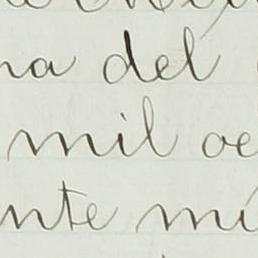 na del
mil oc
nte mi